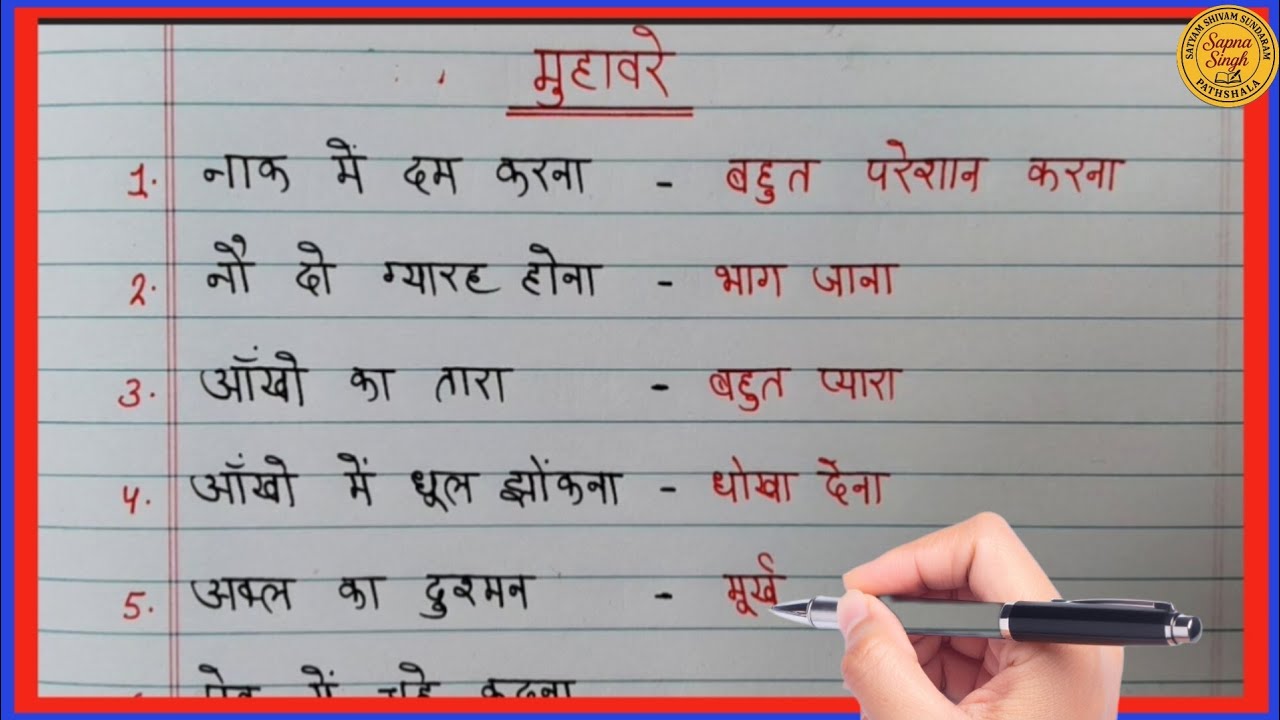 SATYAM SHIVAM SUNDARAM
Sapna
Singh
PATHSHALA
मुहावरे
1. नाक में दम करना - बहुत परेशान करना
2. नौ दो ग्यारह होना - भाग जाना
3. आँखों का तारा - बहुत प्यारा
4. आँखो में धूल झोंकना - धोखा देना
5. अक्ल का दुश्मन - मूर्ख
में चूहे कूदना